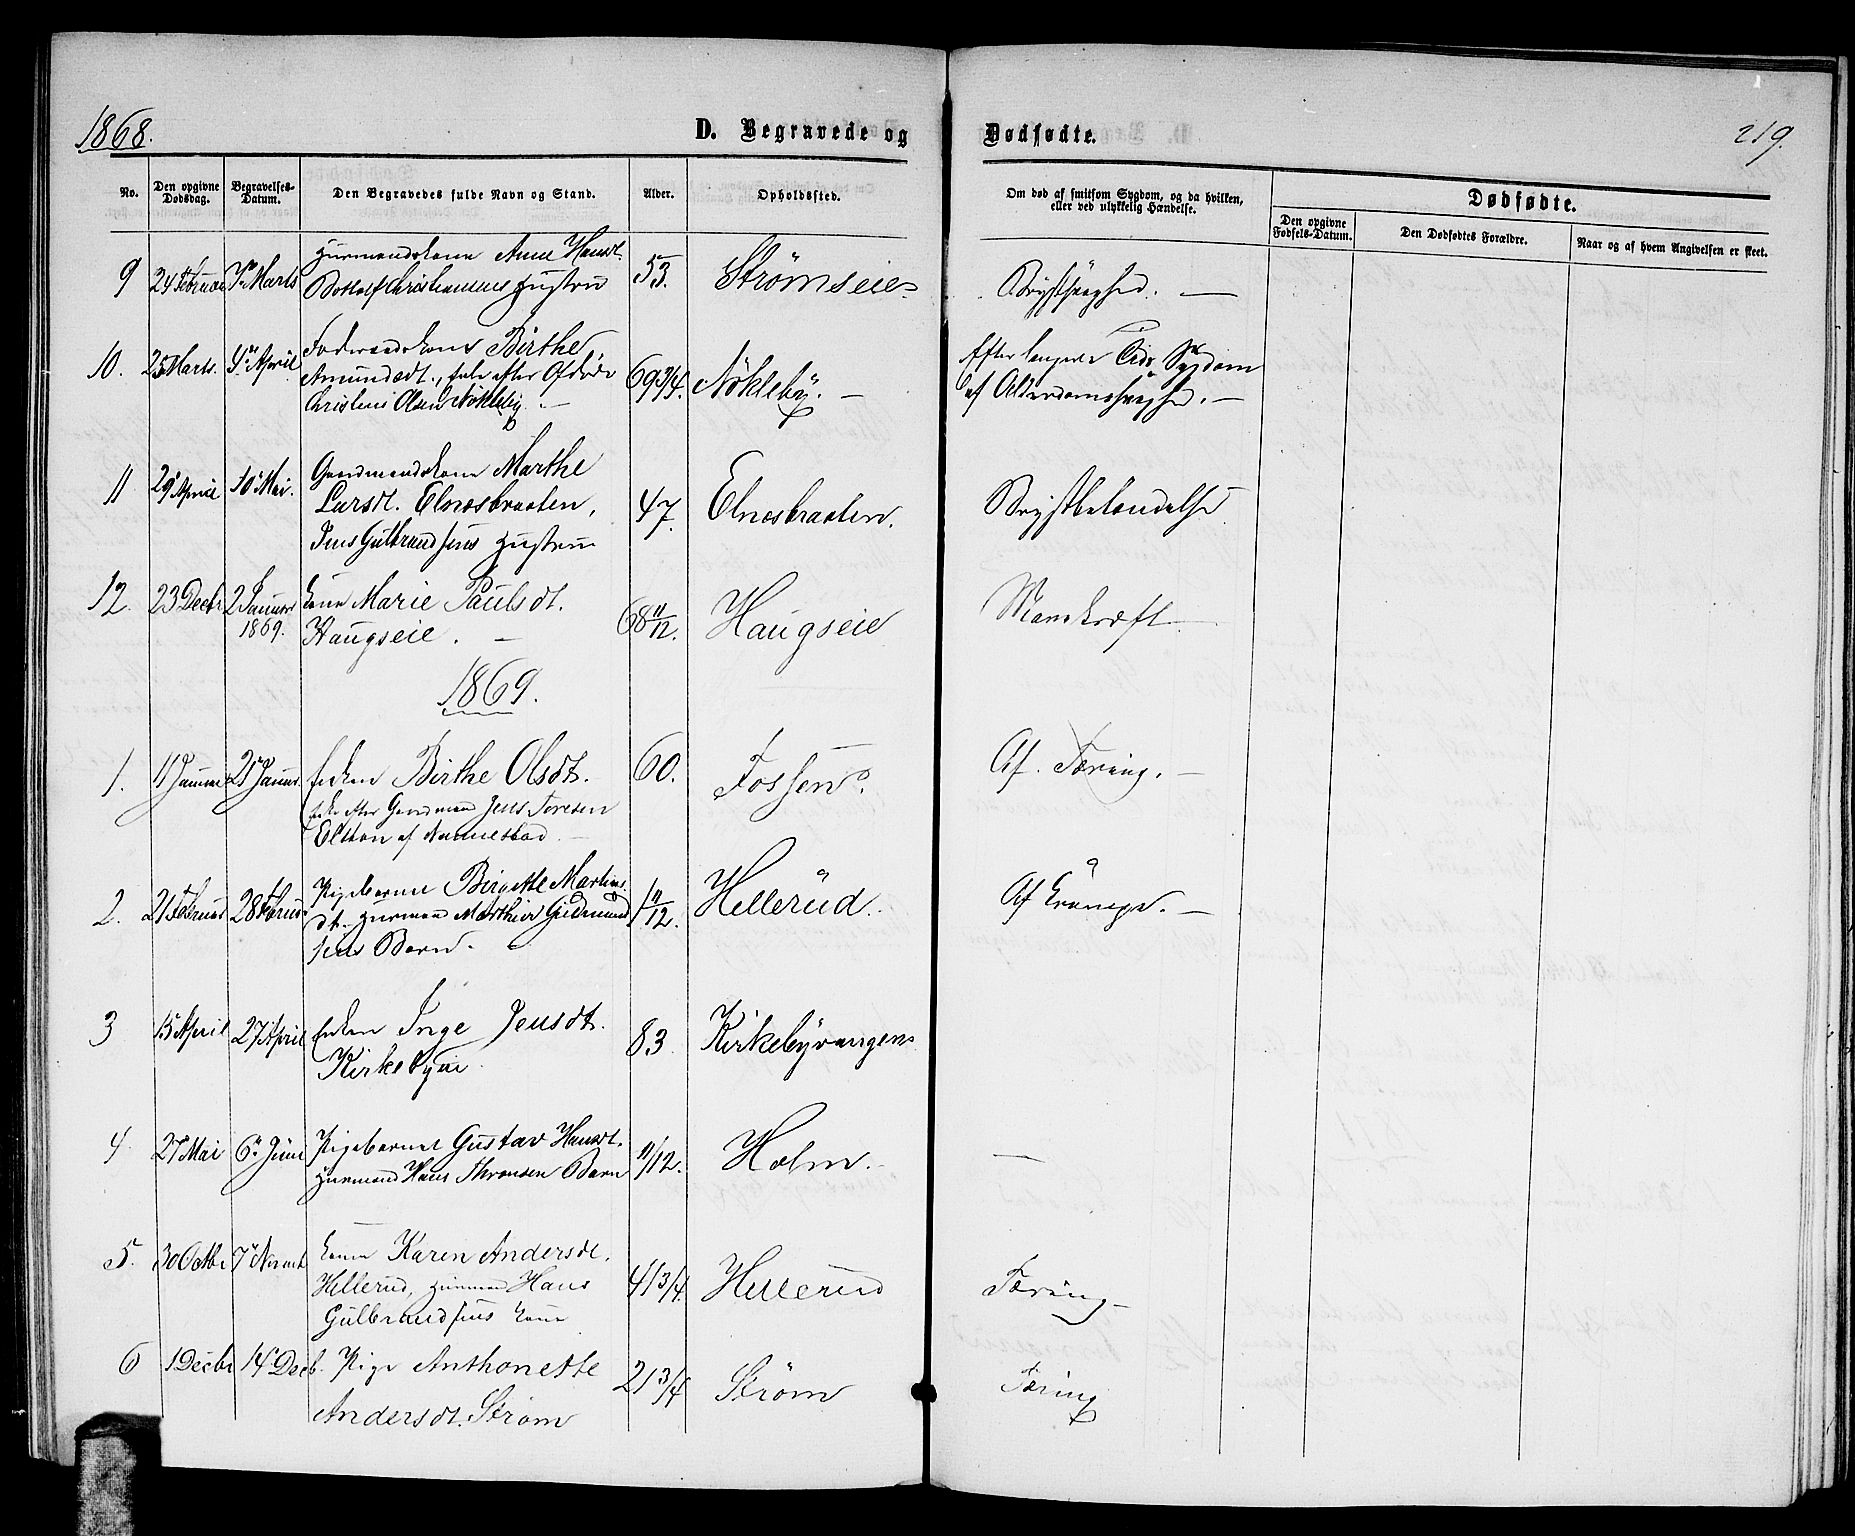 1868.
D. Begravede og Dødfødte.
219.
No.
Den opgivne Dødsdag.
Begravelses-Datum.
Den Begravedes fulde Navn og Stand.
Alder.
Opholdssted.
Om død af smitsom Sygdom, og da hvilken, eller ved ulykkelig Hændelse.
Dødfødte.
Den opgivne Fødsels-Datum.
Den Dødfødtes Forældre.
Naar og af hvem Angivelsen er skeet.
9 24 Februar Marts Huusmandskone Anne Hansdt.
Christiansens Hustru 53. Strømseie
Brystsyghed. —
10. 25 Marts April Føderaadskone Birthe
Amundsdt., Enke efter Afdøde
Christen Olsen Nökleby. — 69 3/4. Nökleby. —
Efter længere Tids Sygdom
af Alderdomssvaghed. —
11 29 April 10 Mai. Gaardmandskone Marthe
Larsdt. Elnesbraaten,
Jens Gulbrandsens Hustru 47. Elnesbraaten.
Brystbetændelse
12. 23 Decbr 2 Januar 1869. Kone Marie Paulsdt.
Haugseie. — 68 11/12. Haugseie
Mavekræft
1869.
1. 11 Januar 21 Januar Enken Birthe Olsdt.
Enke efter Gaardmand Jens Toresen
Eltton af Nannestad 60. Fossen
Af Tæring. —
2. 21 Februar 28 Februar Pigebarnet Birgitte Martins
dt. Huusmand Marthin Gudmund
sens Barn. 1 11/12. Hellerud.
Af Krampe. —
3 15 April 27 April Enken Inge Jensdt.
Kirkebyeie 83 Kirkebyvangen
4 27 Mai 6 Juni Pigebarnet Gustav Hansdt.
Huusmand Hans Barn 11/12. Holm.
—
5. 30 Octbr 7 Novemb Kone Karen Andersdt.
Hellerud, Huusmand Hans
Gulbrandsens Kone 41 3/4 Hellerud
Tæring —
6 1 Decbr 14 Decb. Pige Anthonette
Andersdt. Strøm 21 3/4 Strøm
Tæring